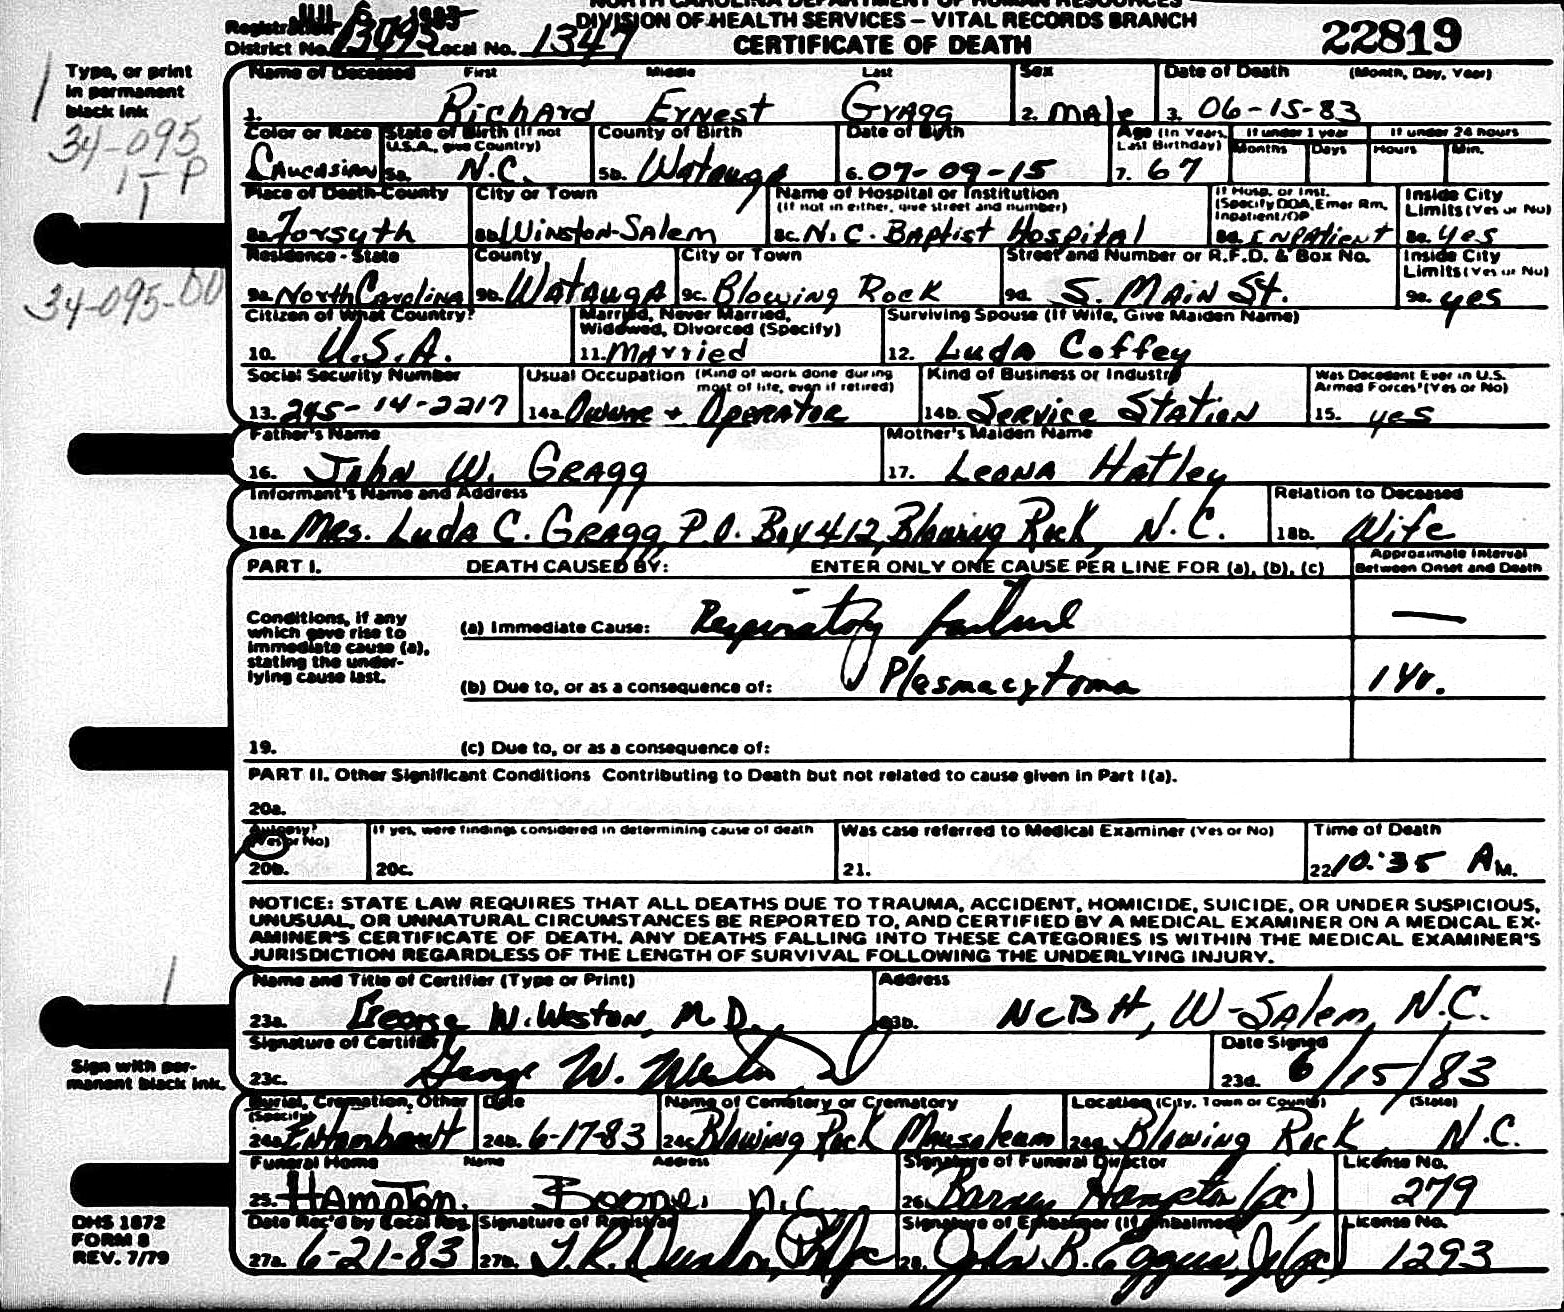 NORTH CAROLINA DEPARTMENT OF HUMAN RESOURCES
DIVISION OF HEALTH SERVICES – VITAL RECORDS BRANCH
CERTIFICATE OF DEATH
22819
Registration District No. 13095 Local No. 1347
Type, or print in permanent black ink
34-095
1-P
1
34-095-00
Name of Deceased First Middle Last
1. Richard Ernest Gragg
Sex
2. Male
Date of Death (Month, Day, Year)
3. 06-15-83
Color or Race
Caucasian
State of Birth (If not U.S.A., give Country)
5a. N.C.
County of Birth
5b. Watauga
Date of Birth
6. 07-09-15
Age (In Years, Last Birthday)
7. 67
If under 1 year
Months Days
If under 24 hours
Hours Min.
Place of Death-County
8a. Forsyth
City or Town
8b. Winston-Salem
Name of Hospital or Institution
(If not in either, give street and number)
8c. N.C. Baptist Hospital
If Hosp. or Inst. (Specify DOA, Emer Rm, Inpatient/OP
8d. Inpatient
Inside City Limits (Yes or No)
8e. yes
Residence - State
9a. North Carolina
County
9b. Watauga
City or Town
9c. Blowing Rock
Street and Number or R.F.D. & Box No.
9d. S. Main St.
Inside City Limits (Yes or No)
9e. yes
Citizen of What Country?
10. U.S.A.
Married, Never Married, Widowed, Divorced (Specify)
11. Married
Surviving Spouse (If Wife, Give Maiden Name)
12. Luda Coffey
Social Security Number
13. 245-14-2217
Usual Occupation (Kind of work done during most of life, even if retired)
14a. Owner + Operator
Kind of Business or Industry
14b. Service Station
Was Decedent Ever in U.S. Armed Forces? (Yes or No)
15. yes
Father's Name
16. John W. Gragg
Mother's Maiden Name
17. Leona Hatley
Informant's Name and Address
18a. Mrs. Luda C. Gragg, P.O. Box 412, Blowing Rock, N.C.
Relation to Deceased
18b. Wife
PART I. DEATH CAUSED BY: ENTER ONLY ONE CAUSE PER LINE FOR (a), (b), (c)
Approximate Interval Between Onset and Death
Conditions, if any
which gave rise to
immediate cause (a),
stating the under-
lying cause last.
(a) Immediate Cause: Respiratory failure —
(b) Due to, or as a consequence of: Plasmacytoma 1 Yr.
19. (c) Due to, or as a consequence of:
PART II. Other Significant Conditions Contributing to Death but not related to cause given in Part I(a).
20a.
Autopsy? (Yes or No)
20b.
If yes, were findings considered in determining cause of death
20c.
Was case referred to Medical Examiner (Yes or No)
21.
Time of Death
22. 10:35 A M.
NOTICE: STATE LAW REQUIRES THAT ALL DEATHS DUE TO TRAUMA, ACCIDENT, HOMICIDE, SUICIDE, OR UNDER SUSPICIOUS,
UNUSUAL, OR UNNATURAL CIRCUMSTANCES BE REPORTED TO, AND CERTIFIED BY A MEDICAL EXAMINER ON A MEDICAL EX-
AMINER'S CERTIFICATE OF DEATH. ANY DEATHS FALLING INTO THESE CATEGORIES IS WITHIN THE MEDICAL EXAMINER'S
JURISDICTION REGARDLESS OF THE LENGTH OF SURVIVAL FOLLOWING THE UNDERLYING INJURY.
Name and Title of Certifier (Type or Print)
23a. George W. Weston, M.D.
Address
23b. NCBH, W-Salem, N.C.
Sign with per-
manent black ink.
Signature of Certifier
23c. George W. Weston
Date Signed
23d. 6/15/83
Burial, Cremation, Other (Specify)
24a. Entombment
Date
24b. 6-17-83
Name of Cemetery or Crematory
24c. Blowing Rock Mausoleum
Location (City, Town or County) (State)
24d. Blowing Rock N.C.
Funeral Home Name Address
25. Hampton, Boone, N.C.
Signature of Funeral Director
26. Barney Hampton (pc)
License No.
279
DHS 1872
FORM 8
REV. 7/79
Date Rec'd by Local Reg.
27a. 6-21-83
Signature of Registrar
27b.
Signature of Embalmer (If Embalmed)
28. John B. Eggers, Jr (pc)
License No.
1293